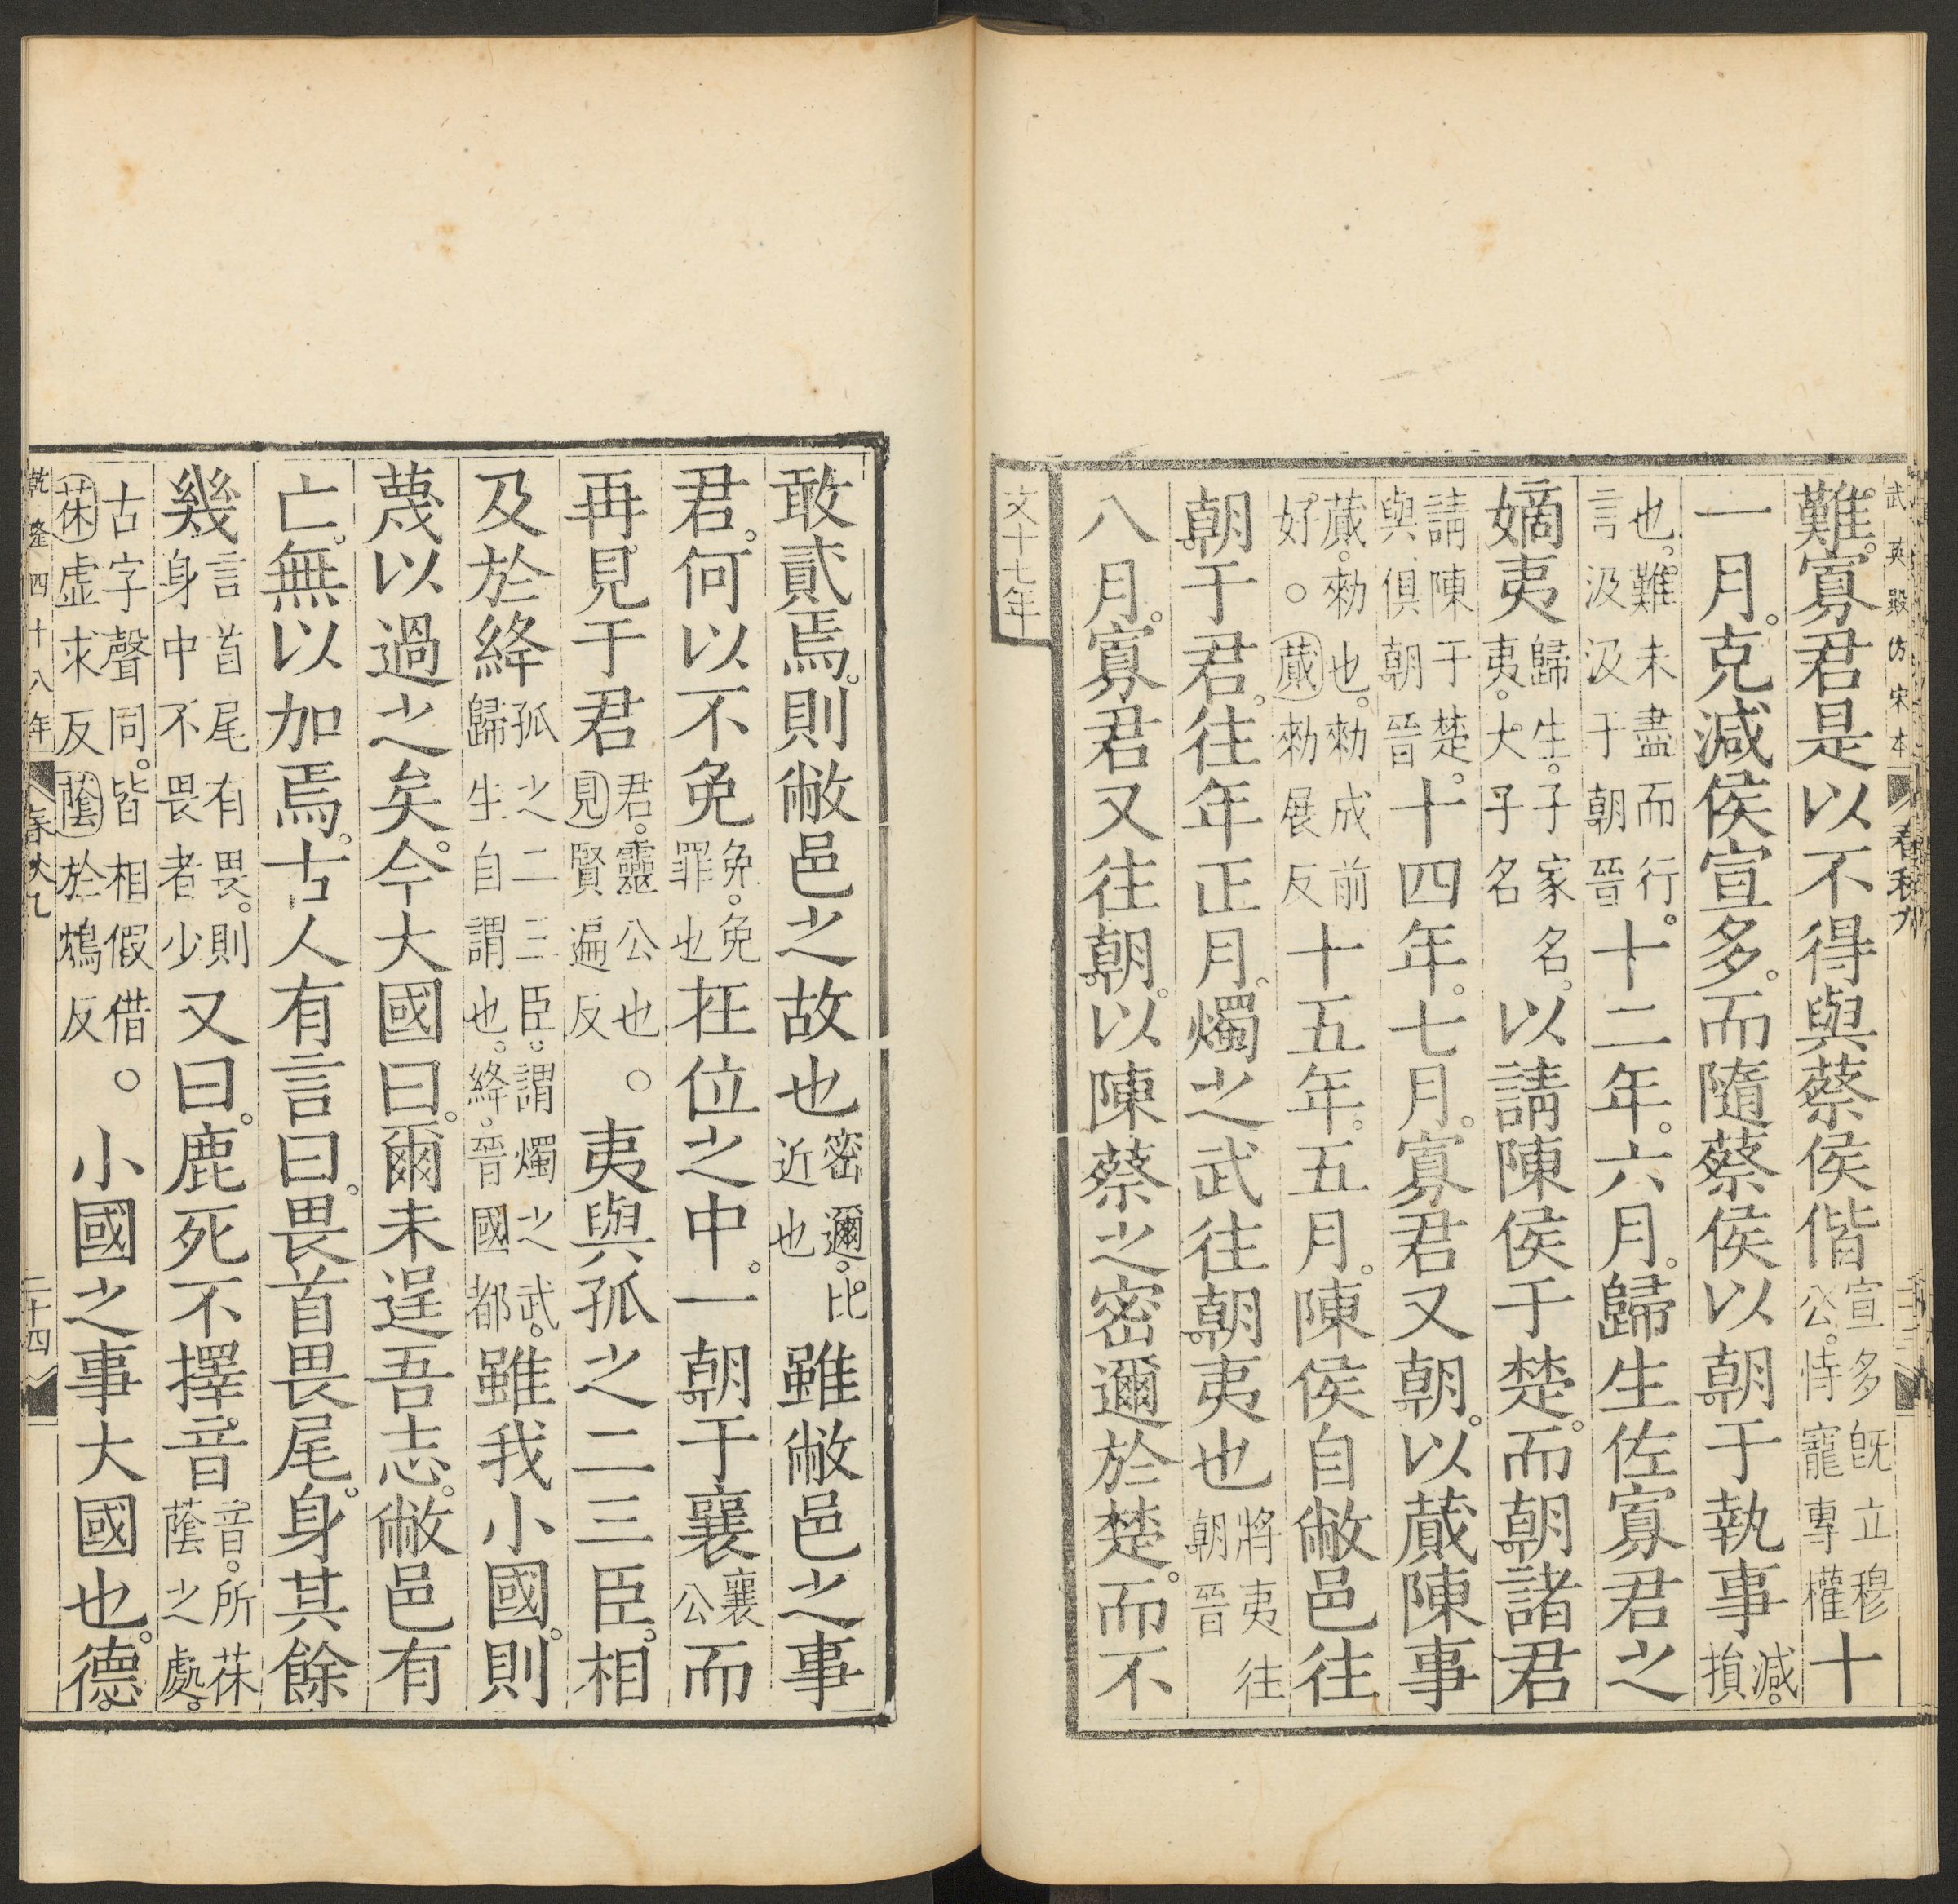 武英殿仿宋本
春秋九
二十三
難寡君是以不得與蔡侯偕宣多旣立穆公恃寵專權十
一月克減侯宣多而隨蔡侯以朝于執事減損
也難未盡而行言汲汲于朝晉十二年六月歸生佐寡君之
嫡夷歸生子家名夷大子名以請陳侯于楚而朝諸君
請陳于楚與俱朝晉十四年七月寡君又朝以蕆陳事
蕆勑也勑成前好○蕆勑展反十五年五月陳侯自敝邑往
朝于君往年正月燭之武往朝夷也將夷往朝晉
八月寡君又往朝以陳蔡之密邇於楚而不
文十七年
敢貳焉則敝邑之故也密邇比近也雖敝邑之事
君何以不免免免罪也在位之中一朝于襄襄公而
再見于君君靈公也見賢遍反○夷與孤之二三臣相
及於絳孤之二三臣謂燭之武歸生自謂也絳晉國都雖我小國則
蔑以過之矣今大國曰爾未逞吾志敝邑有
亡無以加焉古人有言曰畏首畏尾身其餘
幾言首尾有畏則身中不畏者少又曰鹿死不擇音音所茠蔭之處
古字聲同皆相假借茠虛求反蔭於鴆反○小國之事大國也德
乾隆四十八年
春秋九
二十四